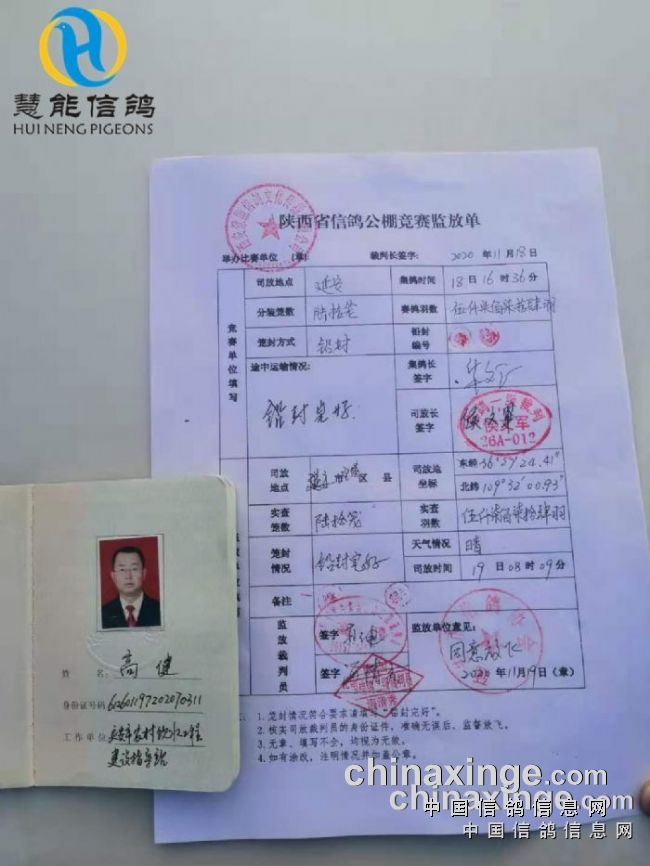 慧能信鸽
HUI NENG PIGEONS
陕西省信鸽公棚竞赛监放单
举办比赛单位 (章) 裁判长签字: 2020 年 11 月 18 日
竞赛单位填写
司放地点 延安 集鸽时间 18 日 16 时 36 分
分装笼数 陆拾笼 赛鸽羽数 伍仟柒佰柒拾肆羽
笼封方式 铅封 铅封编号
途中运输情况: 集鸽长签字
铅封完好 司放长签字
26A-012
司放地点 市 区 县 司放地坐标 东经 36°37′24.41″
北纬 109°32′00.93″
实查笼数 陆拾笼 实查羽数 伍仟柒佰柒拾肆羽
笼封情况 铅封完好 天气情况 晴
司放时间 19 日 08 时 09 分
备注
监放裁判员 签字 监放单位意见:
同意放飞
签字 2020 年 11 月 19 日 (章)
1. 笼封情况符合要求请填写“铅封完好”。
2. 核实司放裁判员的身份证件，准确无误后、监督放飞。
3. 无章、填写不全，均视为无效。
4. 如有涂改，注明情况并加盖公章。
姓名: 高健
身份证号码
工作单位
chinaxinge.com
chinaxinge.com
中国信鸽信息网
中国信鸽信息网